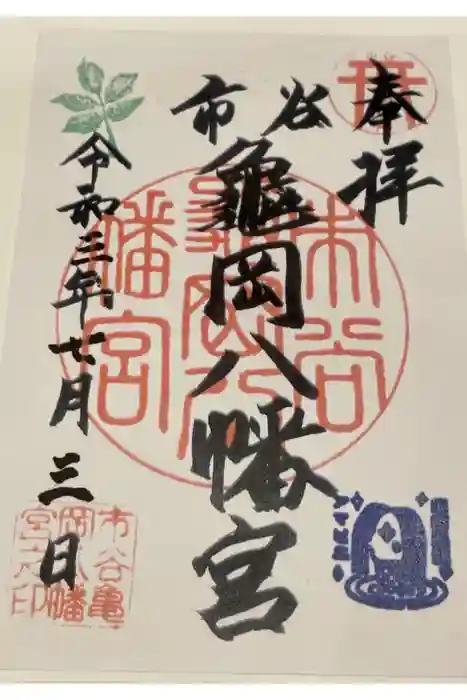 奉拝
市谷
亀岡八幡宮
令和三年七月三日
市谷
亀岡八
幡宮
市谷亀
岡八幡
宮之印